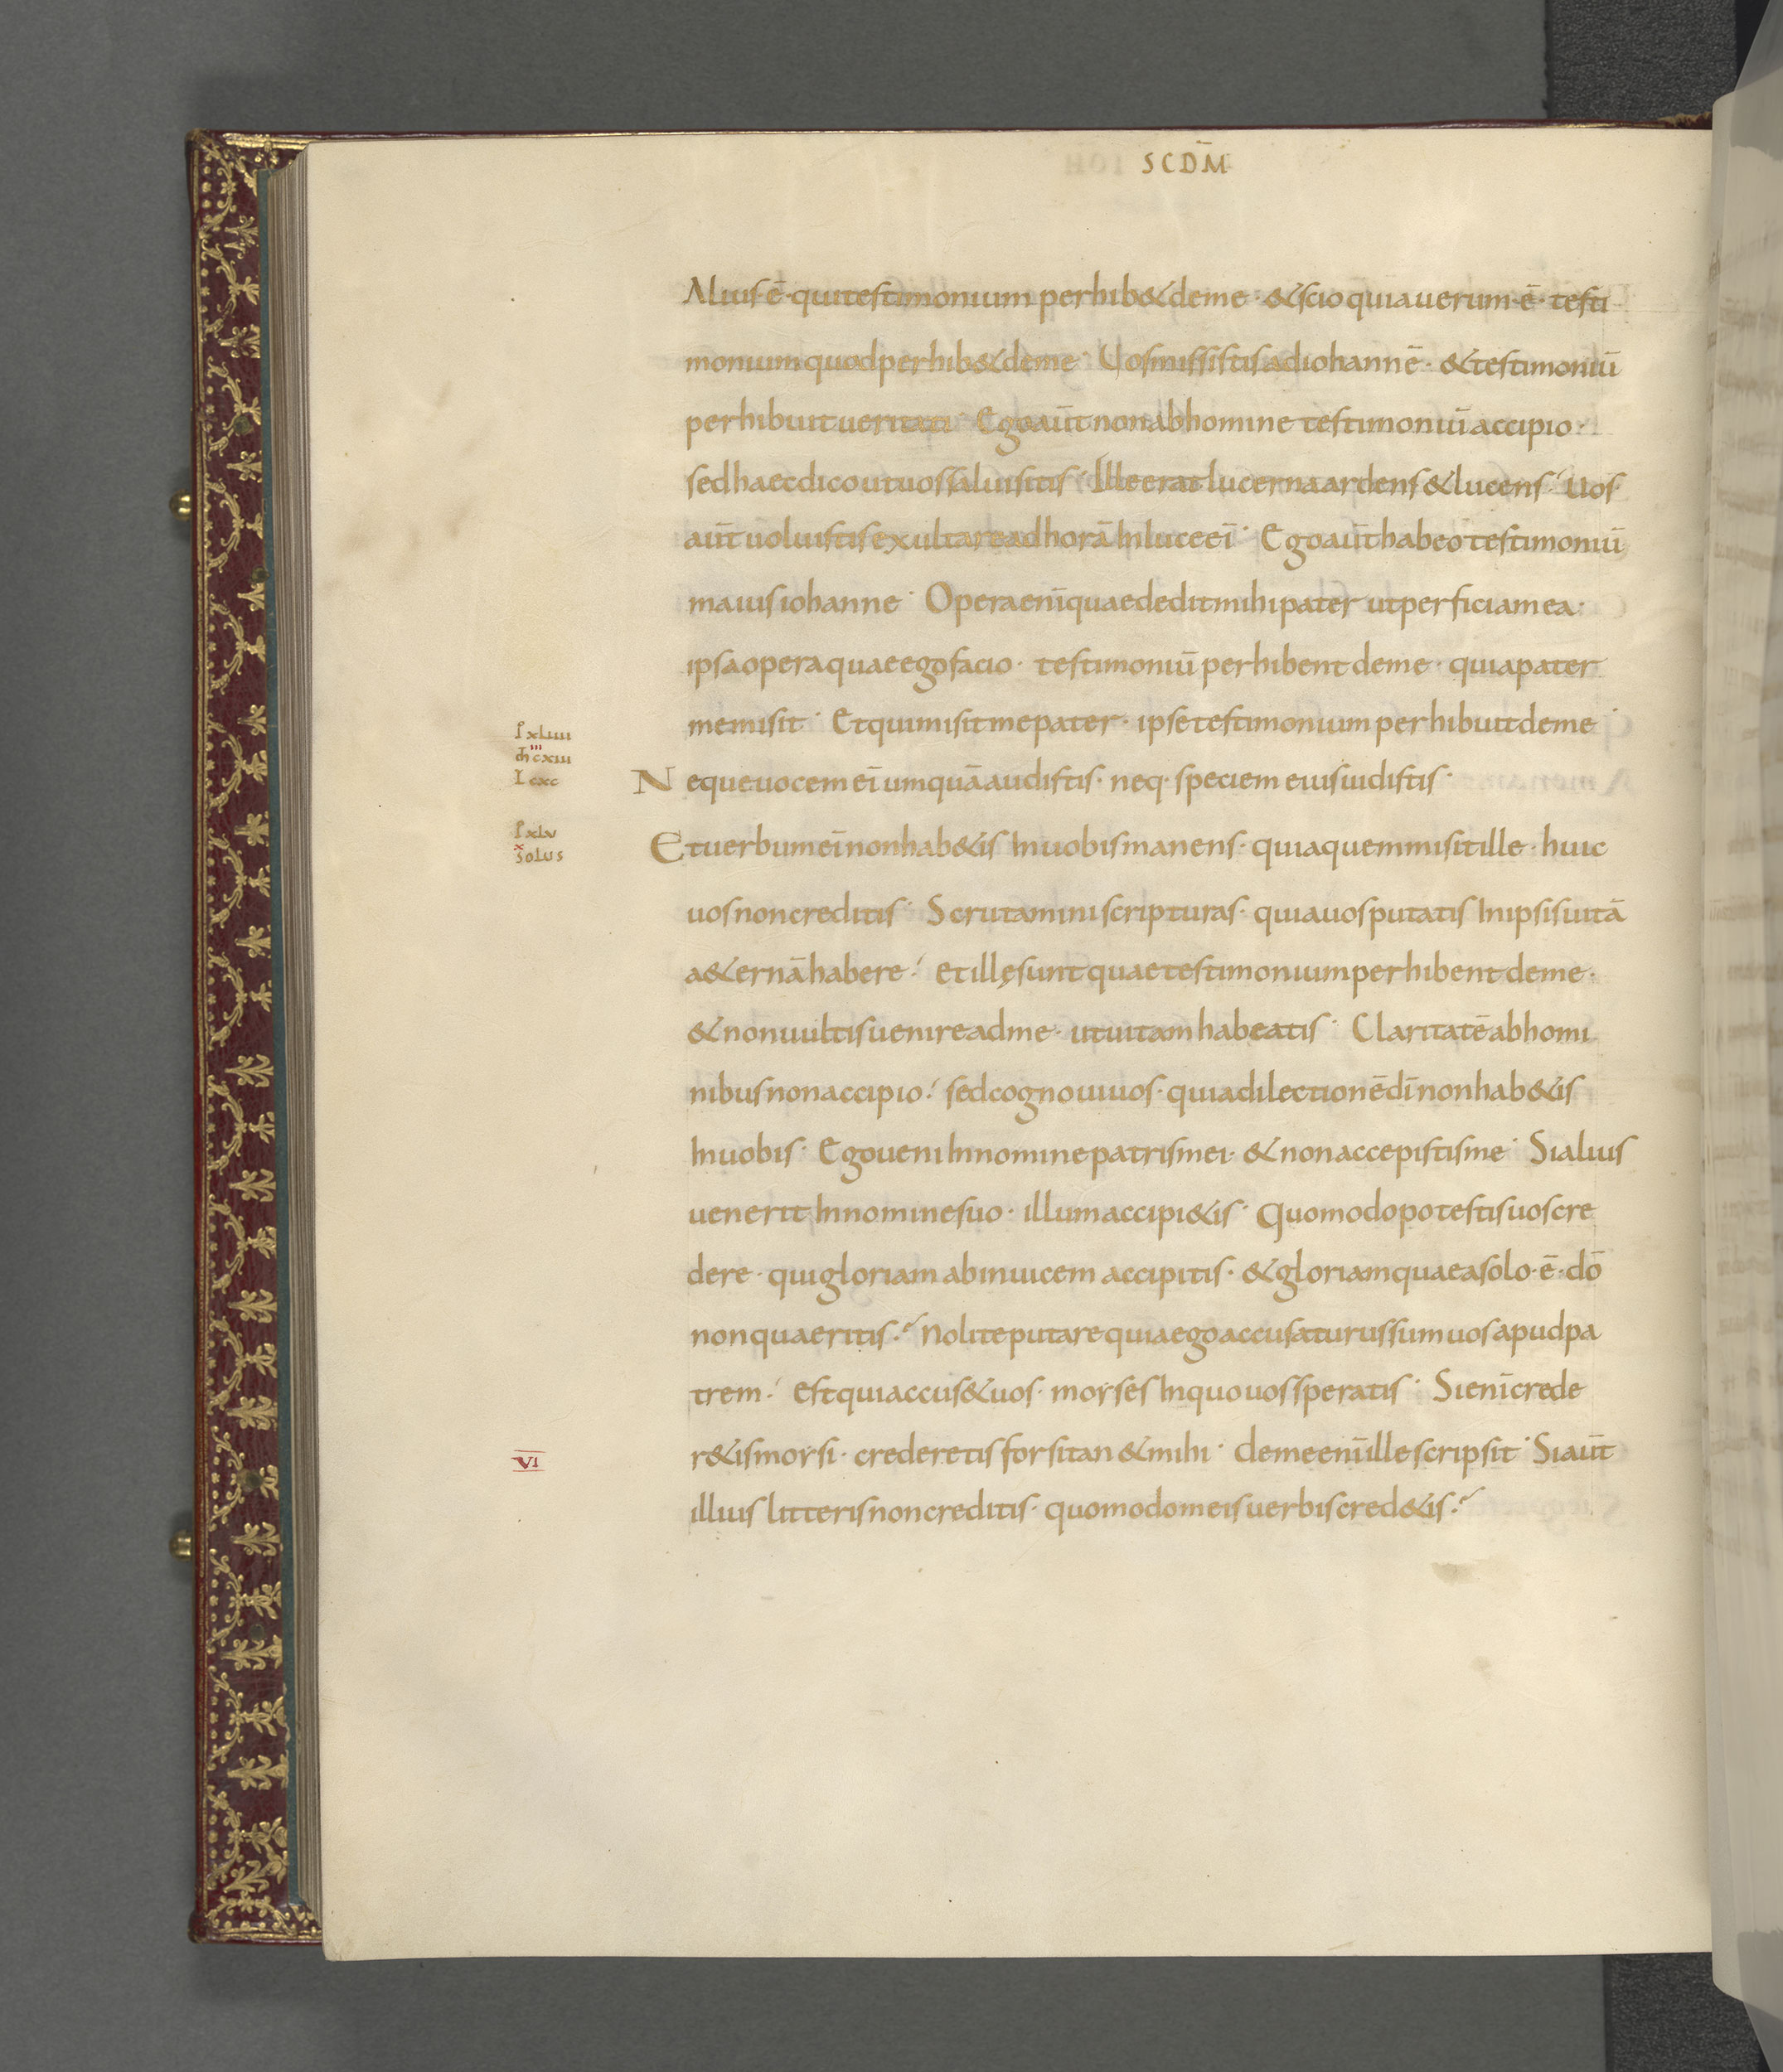 SCDM̄
Alius·ē·qui testimonium perhib& de me· & scio quia uerum·ē· testi
monium quod perhib& de me· Uos misistis ad iohannē· & testimoniū
perhibuit ueritati· Ego aūt non ab homine testimoniū accipio·
sed haec dico ut uos salui sitis· Ille erat lucerna ardens & lucens· Uos
aūt uoluistis exultare ad horā in luce eī· Ego aūt habeo testimoniū
maius iohanne· Opera enī quae dedit mihi pater ut perficiam ea·
ipsa opera quae ego facio· testimoniū perhibent de me· quia pater
me misit· Et qui misit me pater· ipse testimonium perhibuit de me·
Neque uocem eī umquā audistis· neq· speciem eius uidistis·
Et uerbum eī non hab&is in uobis manens· quia quem misit ille· huic
uos non creditis· Scrutamini scripturas· quia uos putatis in ipsis uitā
a&ernā habere· et illę sunt quae testimonium perhibent de me·
& non uultis uenire ad me· ut uitam habeatis· Claritatē ab homi
nibus non accipio· sed cognoui uos· quia dilectionē dī non hab&is
in uobis· Ego ueni in nomine patris mei· & non accepistis me· Si alius
uenerit in nomine suo· illum accipi&is· Quomodo potestis uos cre
dere· qui gloriam ab inuicem accipitis· & gloriam quae a solo·ē·dō
non quaeritis· Nolite putare quia ego accusaturus sum uos apud pa
trem· est qui accus& uos· moyses in quo uos speratis· Si enī crede
r&is moysi· crederetis forsitan & mihi· de me enī ille scripsit· Si aūt
illius litteris non creditis· quomodo meis uerbis cred&is·
xLiiii
iii
cxiii
L cxc
xLv
x
solus
VI